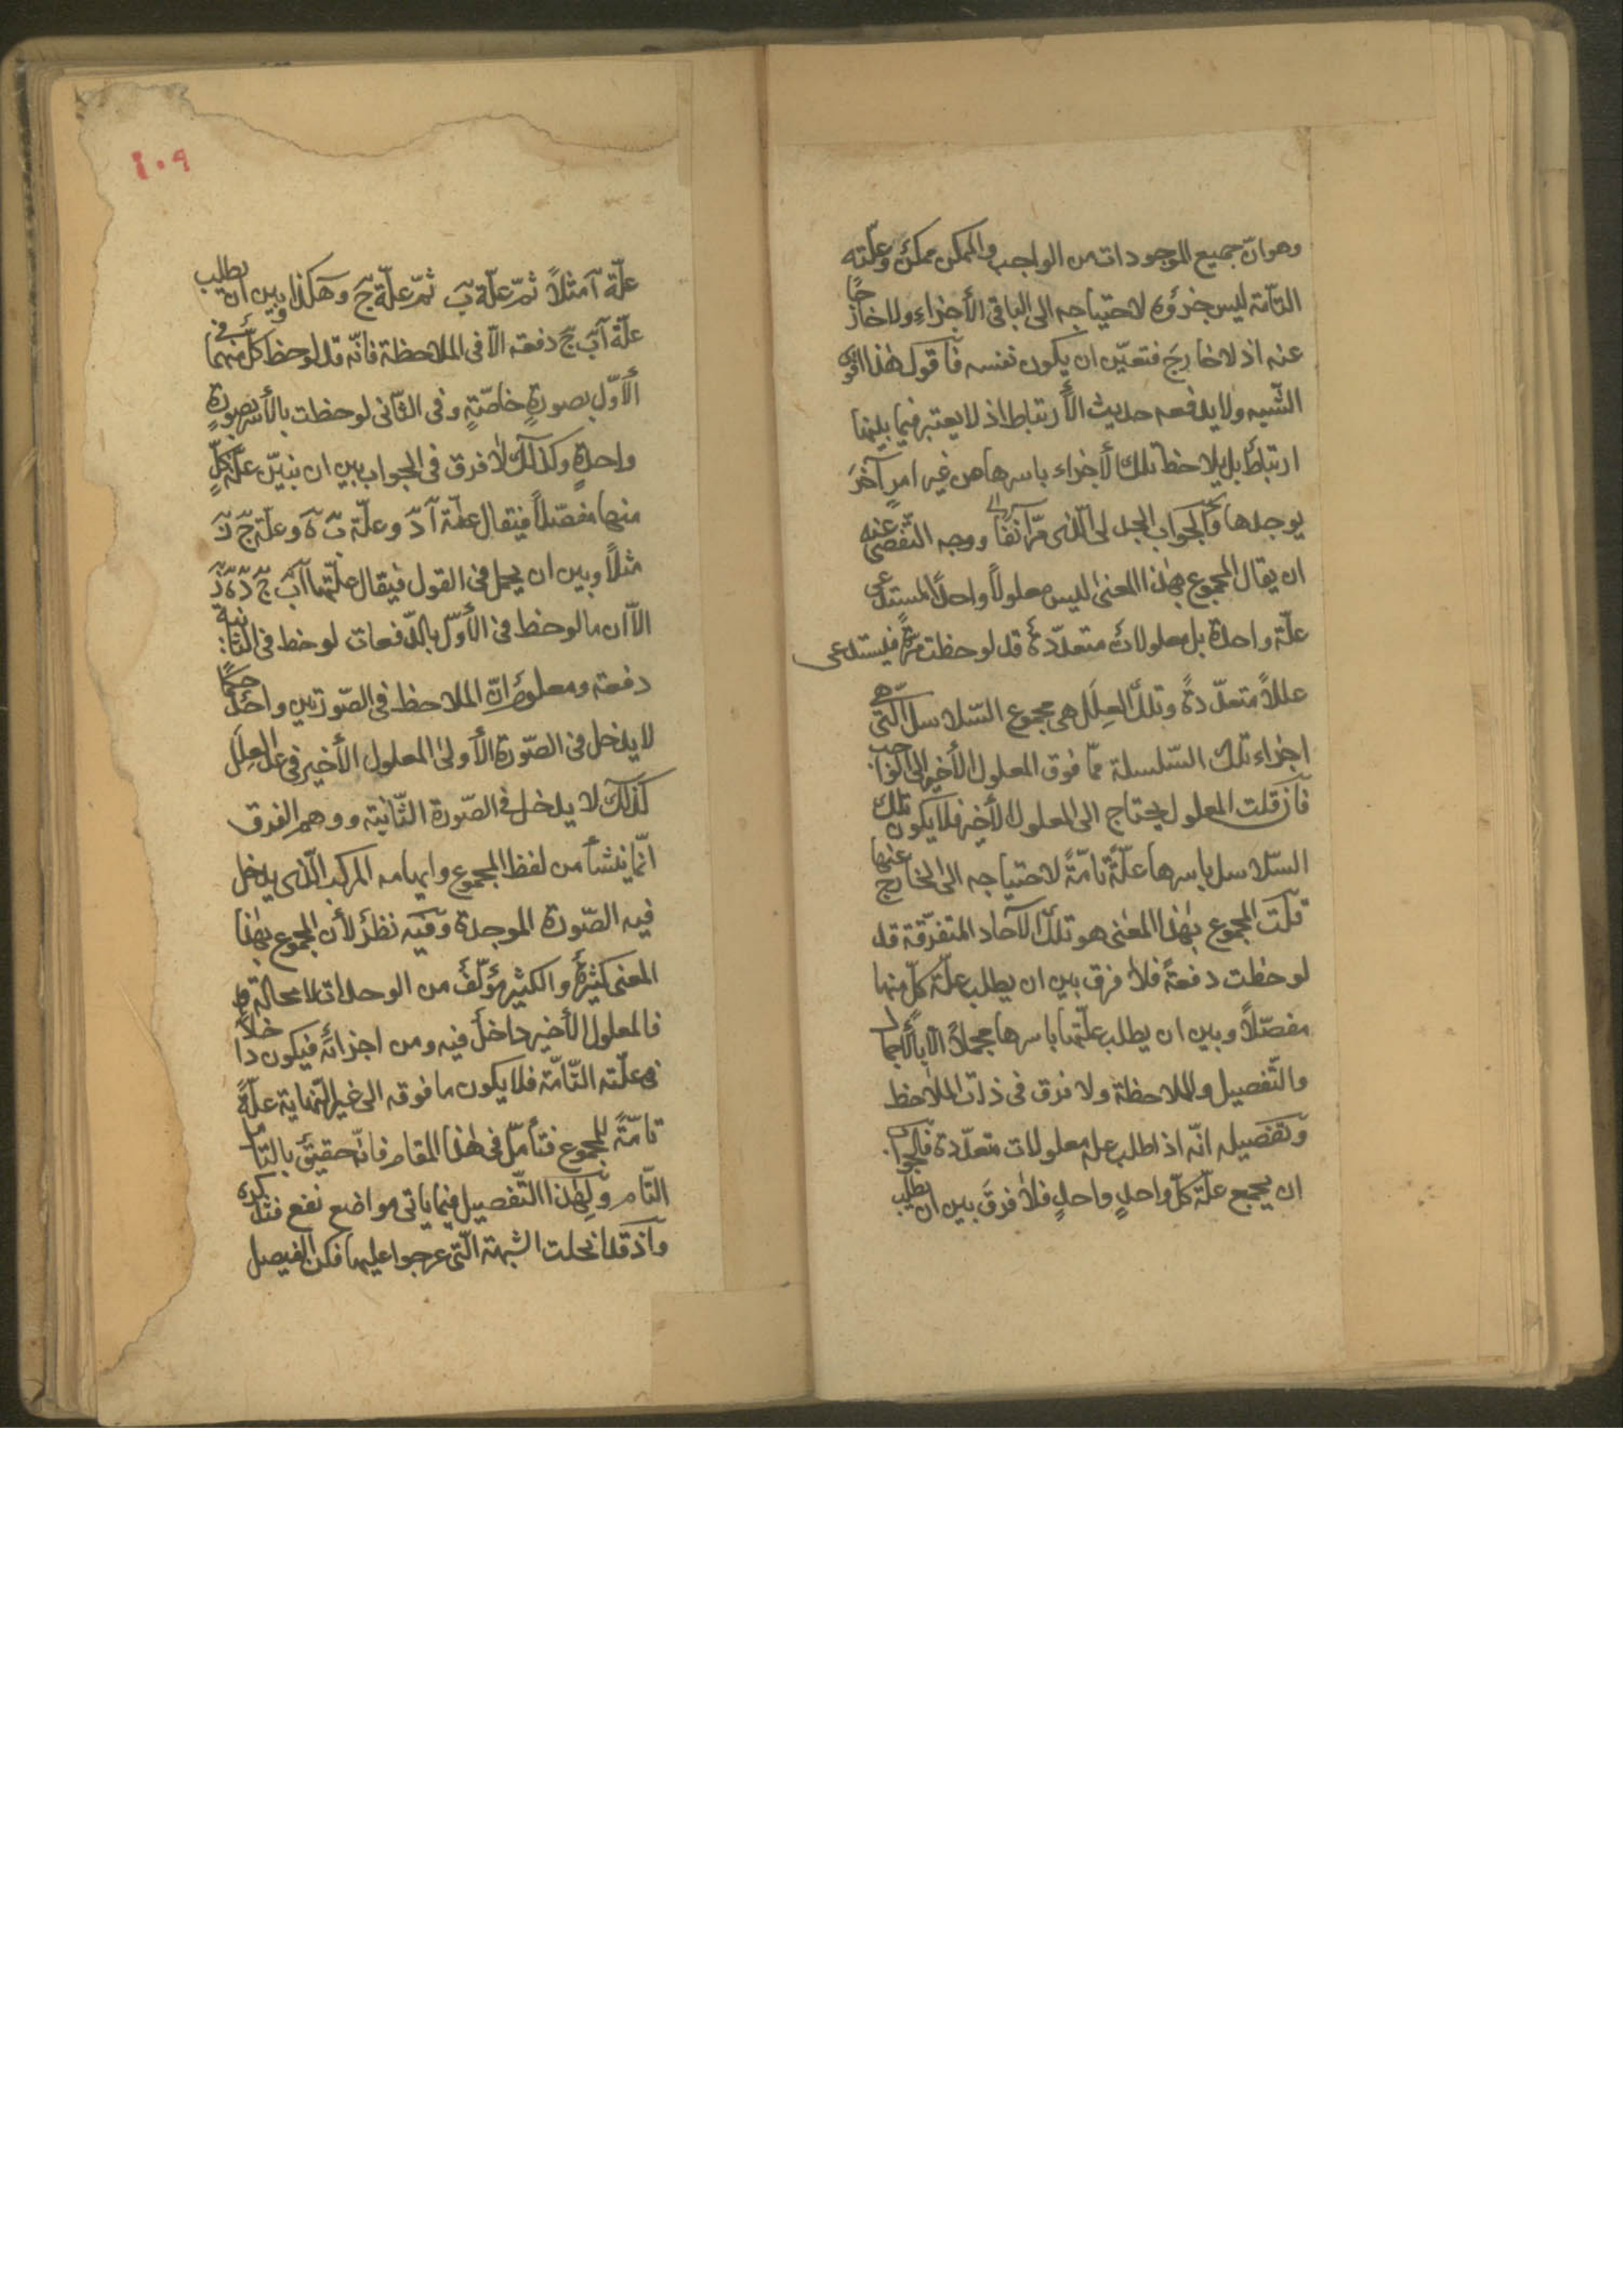 وهو انّ جميع الموجودات من الواجب والممكن ممكنٌ وعلّته
التامّة ليس جزؤه لاحتياجه الى الباقى الأجزاءِ ولا خارجًا
عنه اذ لا خارجَ فتعيّن ان يكون نفسه فاقول هذا اقوى
الشّبه ولا يدفعه حديث الأرتباط اذ لا يعتبر فيما بينها
ارتباطٌ بل يلاحظ تلك الأجزاء باسرها من غير امرٍ آخرَ
يوجدها والجواب الجدلى الّذى مرّ آنفًا ووجه التّفصّى عنه
ان يقال المجموع بهٰذا المعنىٰ ليس معلولاً واحدًا يستدعى
علّة واحدة بل معلولاتٌ متعدّدةٌ قد لوحظت مرّةً فيستدعى
عللاً متعدّدةً وتلك العِلَل هى مجموع السّلاسل الّتى هى
اجزاء تلك السّلسلة ممّا فوق المعلول الأخير الى الواجب
فان قلت المعلول يحتاج الى المعلول الأخير فلا يكون تلك
السّلاسل باسرها علّةً تامّةً لاحتياجه الى الخارج عنها
قلت المجموع بهٰذا المعنٰى هو تلك الآحاد المتفرّقة قد
لوحظت دفعةً فلا فرق بين ان يطلب علّة كلّ منها
مفصّلاً وبين ان يطلب علّتها باسرها مجملاً الّا بالأجمال
والتّفصيل والملاحظة ولا فرق فى ذات الملاحظ
وتفصيله انّه اذا طلب علة معلولات متعدّدة فالجواب
ان يجمع علّة كلّ واحدٍ واحدٍ فلا فرقَ بين ان يطلب
٤٠٩
علّة آ مثلاً ثمّ علّة بَ ثمّ علّة جَ وهكذا وبين ان يطلب
علّة آبَ جَ دفعة الّا فى الملاحظة فانّه قد لوحظ كلٌّ منهما فى
الأوّل بصورةٍ خاصّةٍ وفى الثّانى لوحظت بالأسر بصورةٍ
واحدةٍ وكذلك لا فرق فى الجواب بين ان نبيّن علّة كلٍّ
منها مفصّلاً فيقال علّة آ دَ وعلّة بَ هَ وعلّة جَ زَ
مثلاً وبين ان يجمل فى القول فيقال علّتها آبَ جَ دَ هَ زَ
الاّ ان ما لوحظ فى الأوّل بالدّفعات لوحظ فى الثّانية
دفعة ومعلومٌ انّ الملاحظ فى الصّورتين واحدٌ فكما
لا يدخل فى الصّورة الأولىٰ المعلول الأخير فى عداد العِلَل
كذلك لا يدخل فى الصّورة الثّانية ووهم الفرق
انّما ينشأ من لفظ المجموع وايهامه المركب الّذى يدخل
فيه الصّورة الموجدة وفيه نظرٌ لأن المجموع بهٰذا
المعنى كثيرةٌ والكثير مؤلّفٌ من الوحدات لا محالة
فالمعلول الأخير داخلٌ فيه ومن اجزائه فيكون داخلاً
فى علّته التّامّة فلا يكون ما فوقه الى غير النّهاية علّةً
تامّةً للمجموع فتأمّل فى هٰذا المقام فانّه حقيقٌ بالتأمّل
التّام ولهٰذا التّفصيل فيما ياتى مواضع نفع فتذكره
واذ قد انحلت الشبهة الّتى عرجوا عليها فكن الفيصل